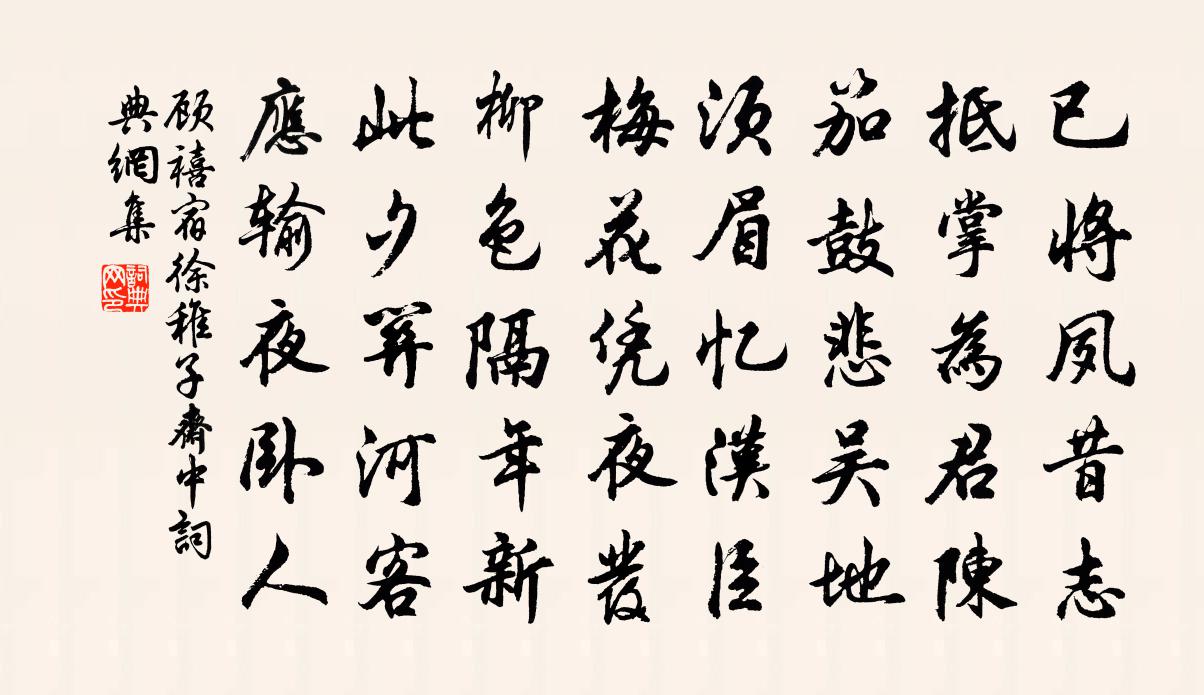 已將夙昔志
抵掌為君陳
笳鼓悲吴地
须眉忆漢臣
梅花凭夜發
柳色隔年新
此夕関河客
應输夜卧人
顾禧宿徐稚子齋中詞
典網集
詞典网印